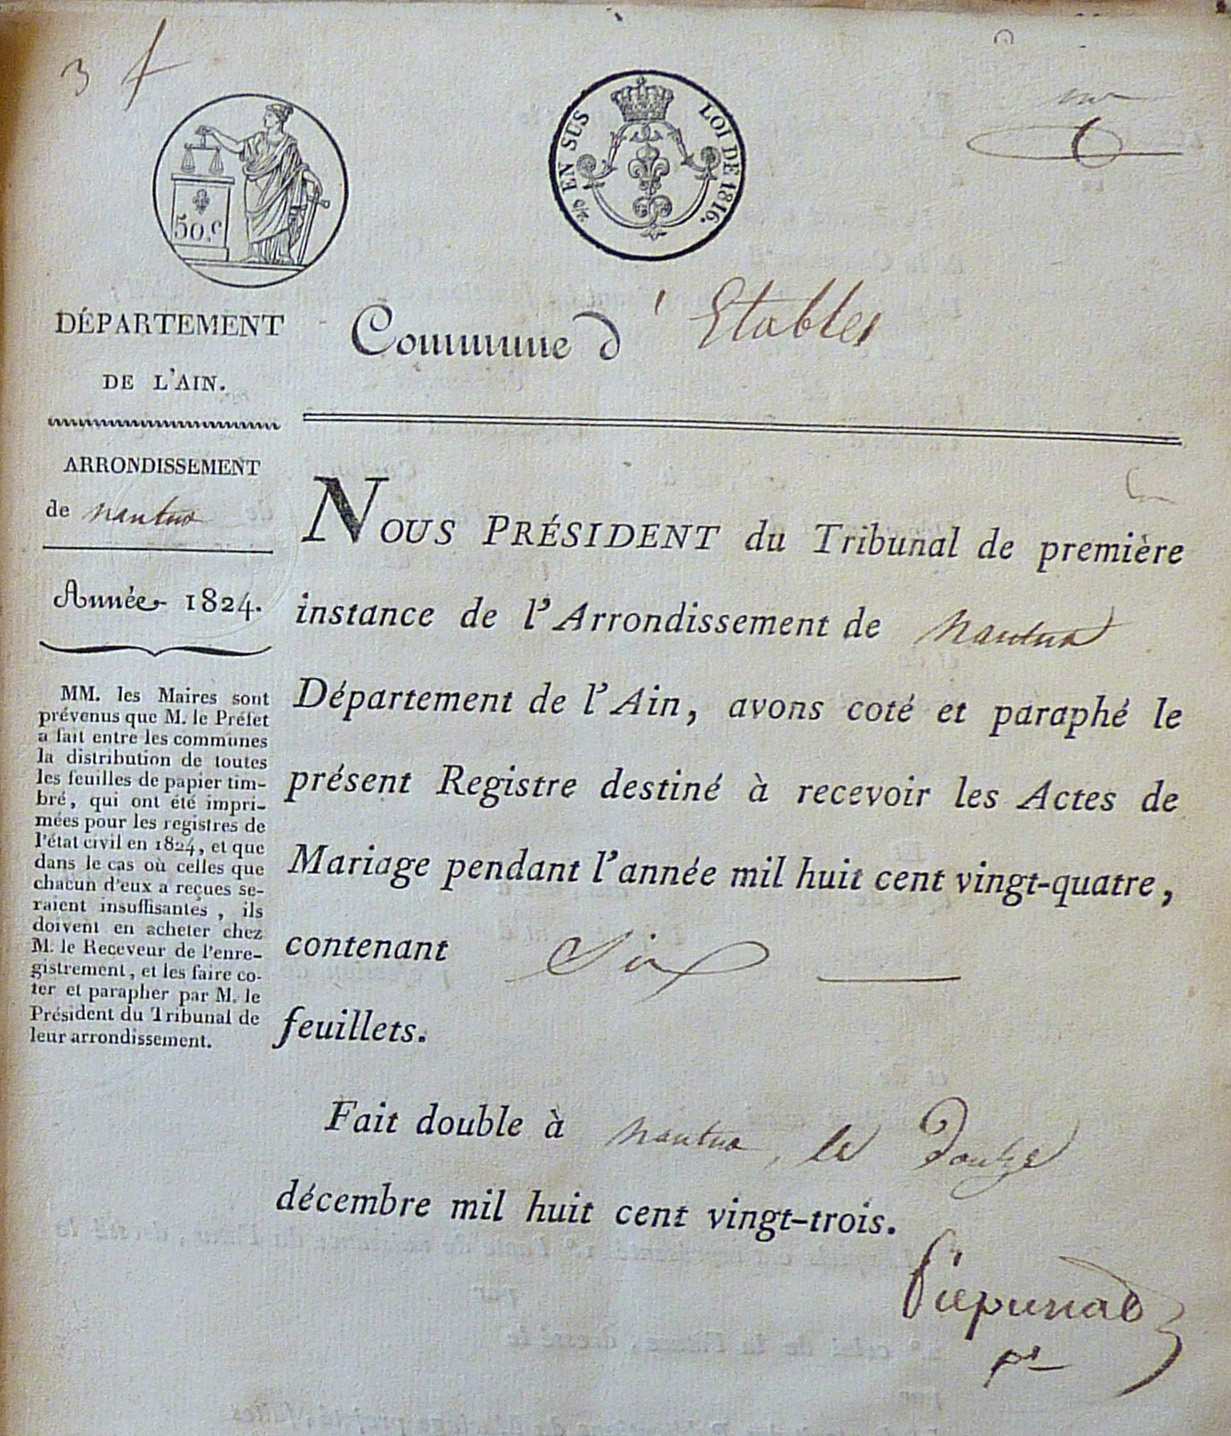 3 f
50.c
c/m EN SUS LOI DE 1816.
DÉPARTEMENT
DE L'AIN.
Commune d' Etables
ARRONDISSEMENT
de nantua
Année 1824.
MM. les Maires sont
prévenus que M. le Préfet
a fait entre les communes
la distribution de toutes
les feuilles de papier tim-
bré, qui ont été impri-
mées pour les registres de
l'état civil en 1824, et que
dans le cas où celles que
chacun d'eux a reçues se-
raient insuffisantes, ils
doivent en acheter chez
M. le Receveur de l'enre-
gistrement, et les faire co-
ter et parapher par M. le
Président du Tribunal de
leur arrondissement.
NOUS PRÉSIDENT du Tribunal de première
instance de l'Arrondissement de nantua
Département de l'Ain, avons coté et paraphé le
présent Registre destiné à recevoir les Actes de
Mariage pendant l'année mil huit cent vingt-quatre,
contenant Six
feuillets.
Fait double à nantua, le Douze
décembre mil huit cent vingt-trois.
pt